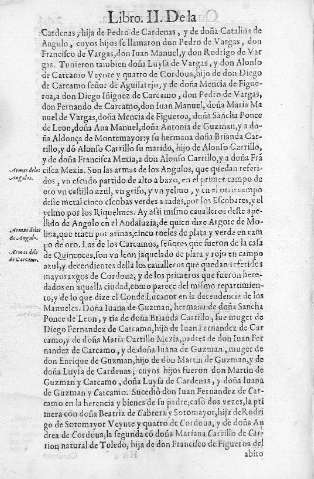 Libro. II. De la
Cardenas, hija de Pedro de Cardenas, y de doña Catalina de
Angulo, cuyos hijos se llamaron don Pedro de Vargas, don
Francisco de Vargas, don Iuan Manuel, y don Rodrigo de Var-
gas. Tuuieron tambien doña Luysa de Vargas, y don Alonso
de Carcamo Veynte y quatro de Cordoua, hijo de don Diego
de Carcamo señor de Aguilarejo, y de doña Mencia de Figue-
roa, a don Diego Iñiguez de Carcamo, don Pedro de Vargas,
don Fernando de Carcamo, don Iuan Manuel, doña Maria Ma
nuel de Vargas, doña Mencia de Figueroa, doña Sancha Ponce
de Leon, doña Ana Manuel, doña Antonia de Guzman, y a do-
ña Aldonça de Montemayor: y su hermana doña Brianda Car-
rillo, y dõ Alonso Carrillo su marido, hijo de Alonso Carrillo,
y de doña Francisca Mexia, a don Alonso Carrillo, y a doña Frã
cisca Mexia. Son las armas de los Angulos, que quedan referi-
das, vn escudo partido de alto a baxo, en el primer campo de
oro vn castillo azul, vn grifo, y vn yelmo, y en el otro campo
deste metal cinco escobas verdes atadas, por los Escobares, y el
yelmo por los Riquelmes. Ay assi mismo caualleros deste ape-
llido de Angulo en el Andaluzia, de quien dize Argote de Mo-
lina, que traen por armas, cinco roeles de plata y verde en cam
po de oro. Las de los Carcamos, señores que fueron de la casa
de Quintoces, son vn leon jaquelado de plata y rojo en campo
azul, y decendientes della los caualleros que quedan referidos
mayorazgos de Cordoua, y de los primeros que fueron here-
dados en aquella ciudad, como parece del mismo repartimien-
to, y de lo que dize el Conde Lucanor en la decendencia de los
Manueles. Doña Iuana de Guzman, hermana de doña Sancha
Ponce de Leon, y tia de doña Brianda Carrillo, fue muger de
Diego Fernandez de Carcamo, hijo de Iuan Fernandez de Car
camo, y de doña Maria Carrillo Mexia, padres de don Iuan Fer
nandez de Carcamo, y de doña Iuana de Guzman, muger de
don Enrique de Guzman, hijo de don Martin de Guzman, y de
doña Luysa de Cardenas; cuyos hijos fueron don Martin de
Guzman y Carcamo, doña Luysa de Cardenas, y doña Iuana
de Guzman y Carcamo. Sucedio don Iuan Fernandez de Car-
camo en la herencia y bienes de su padre, casò dos vezes, la pri
mera con doña Beatriz de Cabrera y Sotomayor, hija de Rodri
go de Sotomayor Veynte y quatro de Cordoua, y de doña An
drea de Cordoua, la segunda cõ doña Mariana Carrillo de Car-
rion natural de Toledo, hija de don Francisco de Figueroa del
abito
Armas delos
Angulos.
Armas delos
de Angulo.
Armas delos
de Carcamo.